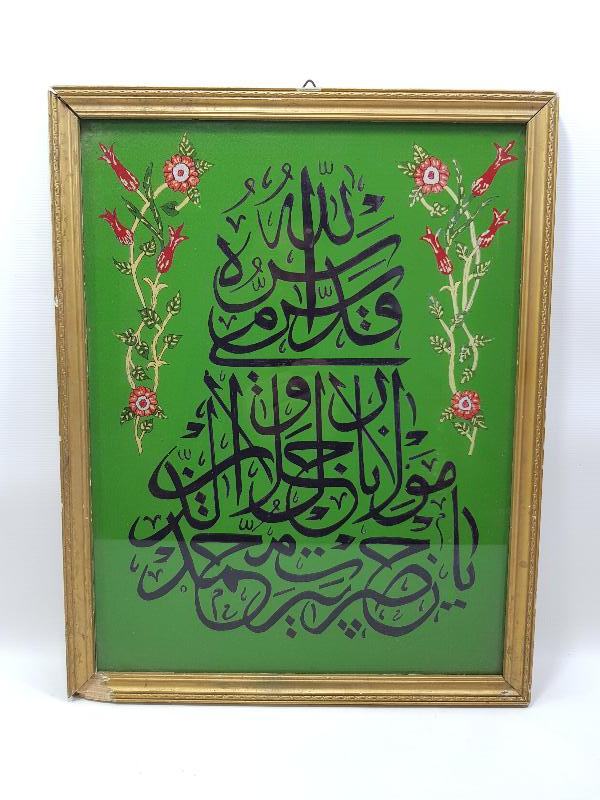 يا حضرت پير محمد
مولانا جلال الدين
رومى قدس الله سره